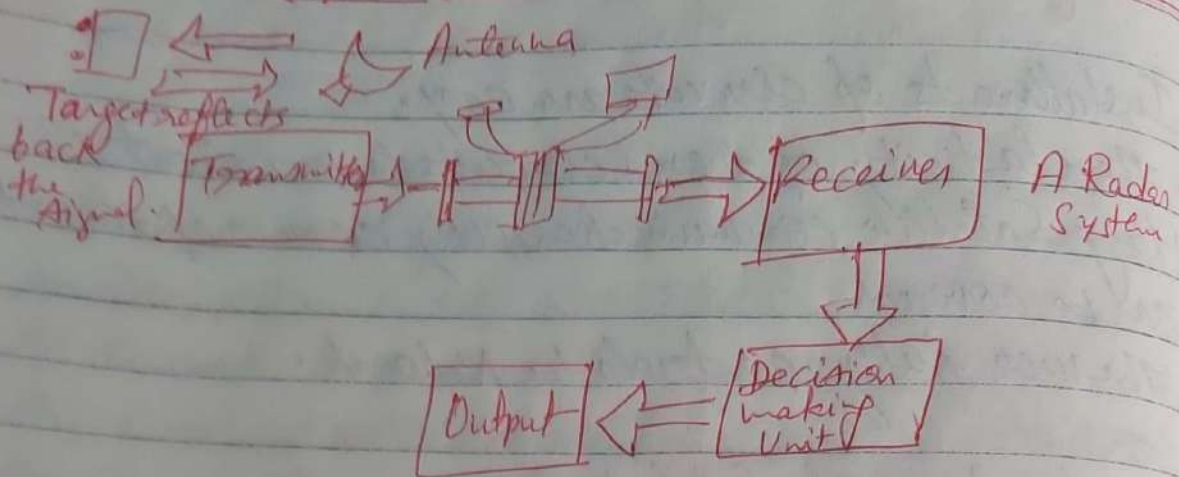 Antenna
Target reflects
back
the
signal.
Transmitter
Receiver
A Radar
System
Decision
making
Unit
Output